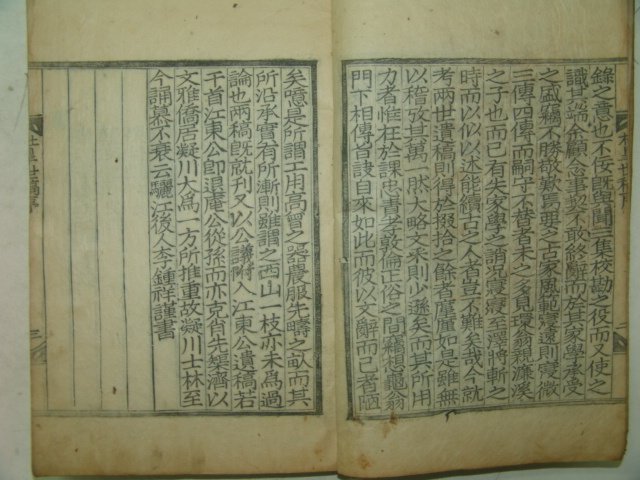 錄之意也不佞旣與聞三集校勘之役而又使之
識其端余顧念事契不敢終辭而於其家學承受
之盛竊不勝敬歎焉噫之古家風範寥遠則寖微
三傳四傳而嗣守不替者未之多見環翁親濂溪
之子也而已有失家學之誚況寖寖至澤將斬之
時而以似以述能續古之人者豈不難矣哉今就
考兩世遺稿則得於掇拾之餘者厪厪如是雖無
以稽攷其萬一然大略文采則少遜矣而其所用
力者惟在於課忠責孝敦倫正俗之間竊想龜翁
門下相傳旨訣自來如此而彼以文辭而已者陋
矣噫是所謂工用高曾之器農服先疇之畝而其
所沿承實有所漸則雖謂之西山一枝亦未為過
論也兩稿旣就刊又以公議附入江東公遺稿若
干首江東公卽退庵公從孫而亦克肖先榘濟以
文雅僑居凝川大為一方所推重故凝川士林至
今誦慕不衰云驪江後人李鍾祥謹書